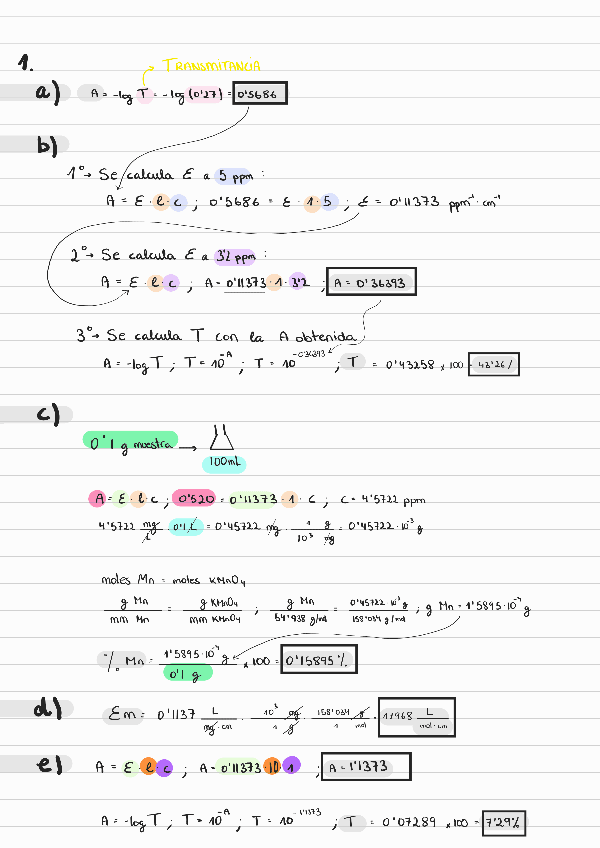 1.
TRANSMITANCIA
a) A = -log T = -log (0'27) = 0'5686
b)
1º → Se calcula E a 5 ppm :
A = E · l · c ; 0'5686 = E · 1 · 5 ; E = 0'11373 ppm⁻¹ · cm⁻¹
2º → Se calcula E a 3'2 ppm :
A = E · l · c ; A = 0'11373 · 1 · 3'2 ; A = 0'36393
3º → Se calcula T con la A obtenida
A = -log T ; T = 10^-A ; T = 10^-0'36393 ; T = 0'43258 x 100 = 43'26 %
c)
0'1 g muestra →
100mL
A = E · l · c ; 0'520 = 0'11373 · 1 · c ; c = 4'5722 ppm
4'5722 mg/L · 0'1 L = 0'45722 mg · 1/10³ g/mg = 0'45722 · 10⁻³ g
moles Mn = moles KMnO₄
g Mn / mm Mn = g KMnO₄ / mm KMnO₄ ; g Mn / 54'938 g/mol = 0'45722 · 10⁻³ g / 158'034 g/mol ; g Mn = 1'5895 · 10⁻⁴ g
% Mn = 1'5895 · 10⁻⁴ g / 0'1 g x 100 = 0'15895 %
d) Em = 0'1137 L/mg·cm · 10³ mg/1 g · 158'034 g/1 mol = 17968 L/mol·cm
e) A = E · l · c ; A = 0'11373 · 10 · 1 ; A = 1'1373
A = -log T ; T = 10^-A ; T = 10^-1'1373 ; T = 0'07289 x 100 = 7'29%